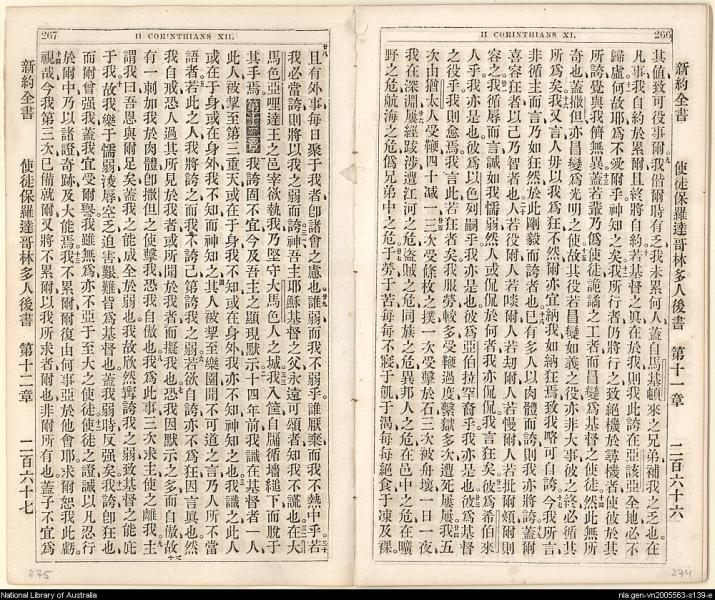 266
II CORINTHIANS XI.
新約全書 使徒保羅達哥林多人後書 第十一章 二百六十六
其值致可役事爾我偕爾時有乏我未累何人蓋自馬基頓來之兄弟補我之乏也在
凡事我自約於累爾且終將自約若基督之眞在於我則我此誇在亞該亞全地必不
歸虛何故耶爲不愛爾乎神知之矣我所行者仍將行之致絕機於尋機者使彼於其
所誇覺與我儕無異蓋若輩乃僞使徒詭譎之工者而昌變爲基督之使徒然此無所
奇也蓋撒但亦昌變爲光明之使故其役若昌變如義之役亦非大事彼之終必循其
所爲矣我又言人毋以我爲狂不然爾亦宜納我如納狂焉致我略可自誇今我所言
非循主而言乃如狂然於此剛毅而誇者也已有多人以肉體而誇則我亦將誇蓋爾
喜容狂者以己乃智者也人若役爾人若啖爾人若刧爾人若慢爾人若批爾頰爾則
容之我循辱而言誠如我懦弱然人或侃侃於何者我亦侃侃我言狂矣彼爲希伯來
人乎我亦是也彼爲以色列嗣乎我亦是也彼爲亞伯拉罕裔乎我亦是也彼爲基督
之役乎我則愈焉我言此若狂者矣我服勞較多受鞭過度繫獄多次遭死屢屢我五
次由猶太人受鞭四十減一三次受條枚之撲一次受擊於石三次被舟壞一日一夜
我在深淵屢經跋涉遭江河之危盜賊之危同族之危異邦人之危在邑中之危在曠
野之危航海之危僞兄弟中之危於勞于苦每每不寢于饑于渴每每絕食于凍及裸
274
267
II CORINTHIANS XII.
且有外事每日聚于我者卽諸會之慮也誰弱而我不弱乎誰厭棄而我不熱中乎若
我必當誇則將以我之弱而誇神吾主耶穌基督之父永遠可頌者知我不謊也在大
馬色亞哩達王之邑宰欲執我乃堅守大馬色人之城我入筐自牖循墻縋下而脫于
其手焉第十二章我誇固不宜今及吾主之顯現默示十四年前我識在基督者一人
此人被挈至第三重天或在于身或在身外我不知而神知之其人被挈至樂園聞不可道之言乃人所不當
語者若此之人我將誇之而我不誇己第誇我之弱若欲自誇亦不爲狂因言眞也然
我自戒恐人過其所見於我者或所聞於我者而擬我也恐我因默示之多而自傲故
有一刺如我於肉體卽撒但之使擊我恐我自傲也我爲此事三次求主使之離我主
謂我曰吾恩與爾足矣蓋我之能成全於弱也我故欣然寧誇我之弱致基督之能庇
于我故我樂于懦弱淩辱空乏迫害艱難皆爲基督也蓋我弱時反強矣我誇卽狂然
而爾曾强我蓋我宜受爾譽我雖無爲亦不亞于至大之使徒使徒之證誠以凡忍行
於爾中乃以諸證奇跡及大能焉我不累爾爾復由何事亞於他會耶求爾恕我此虧
視哉今我第三次已備就爾又將不累爾以我所求者爾也非爾所有也蓋子不宜爲
新約全書 使徒保羅達哥林多人後書 第十二章 二百六十七
275
National Library of Australia
nla.gen-vn2005563-s139-e